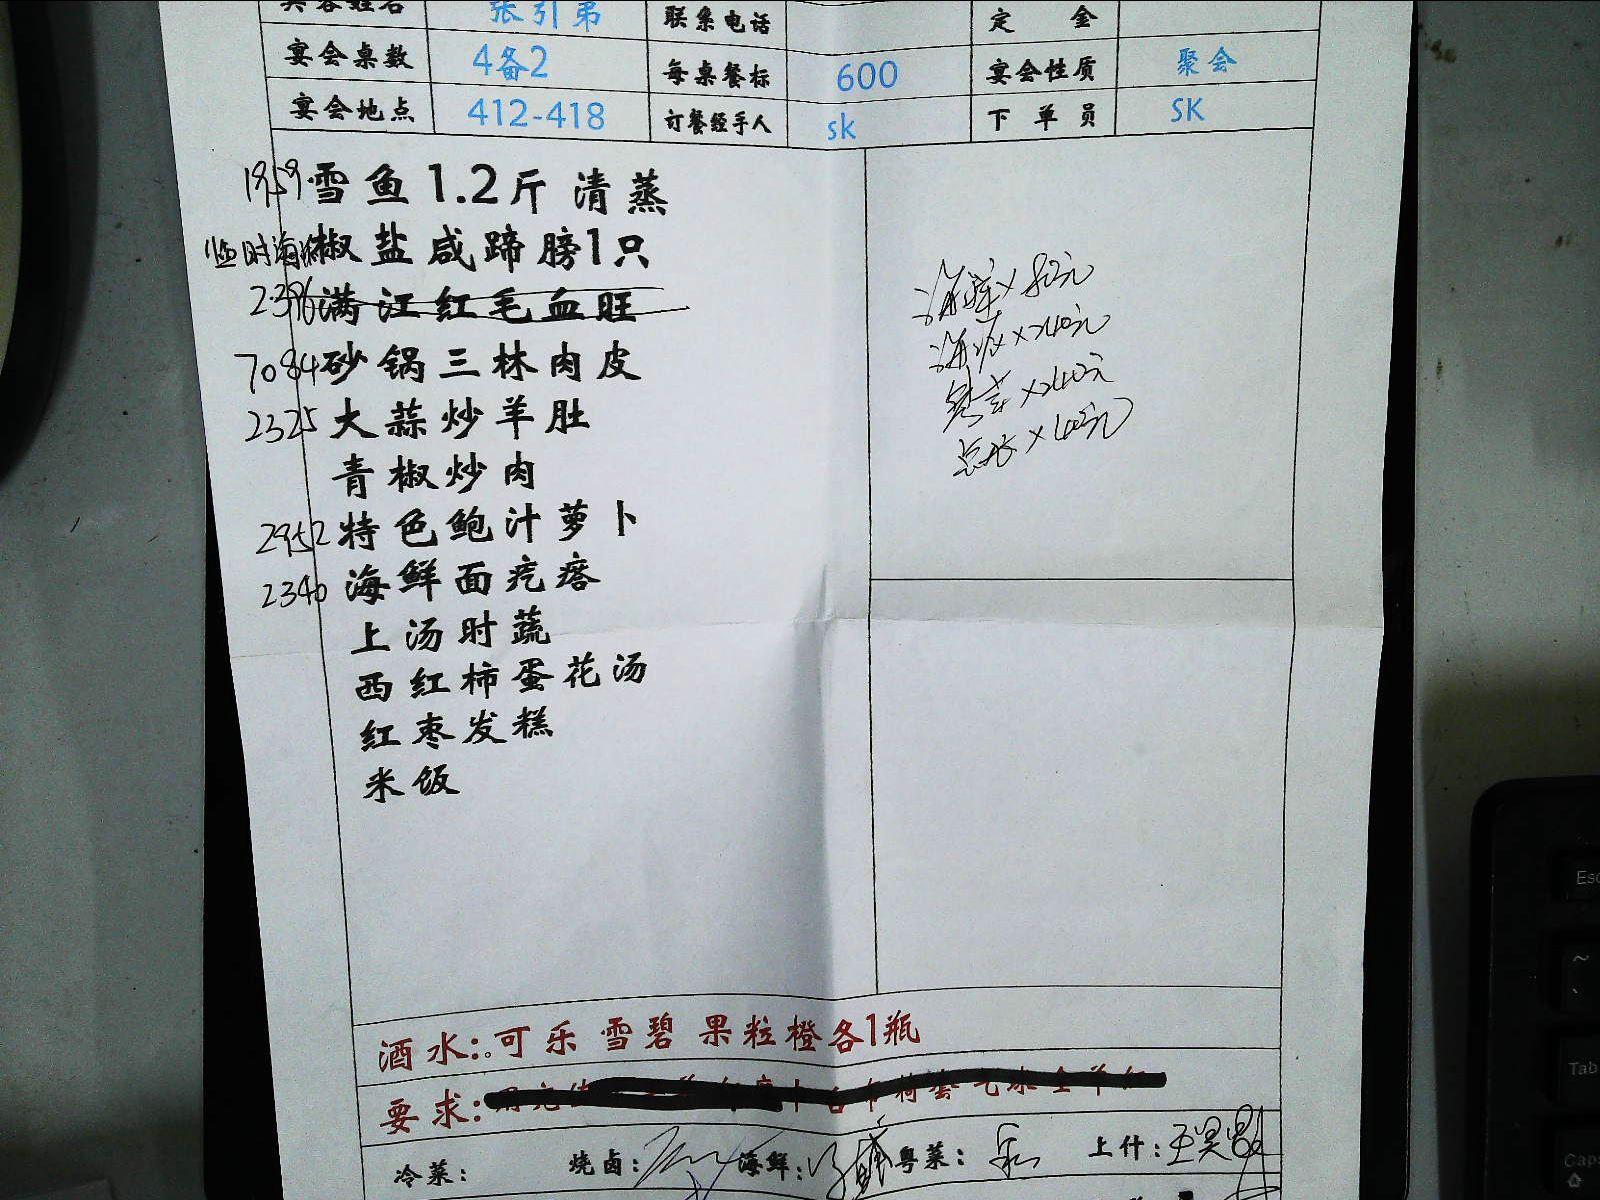 宾客姓名 张引弟 联系电话 定金
宴会桌数 4备2 每桌餐标 600 宴会性质 聚会
宴会地点 412-418 订餐经手人 sk 下单员 SK
1959 雪鱼1.2斤 清蒸
临时海鲜 椒盐咸蹄膀1只
2396 满江红毛血旺
7084 砂锅三林肉皮
2325 大蒜炒羊肚
青椒炒肉
2952 特色鲍汁萝卜
2340 海鲜面疙瘩
上汤时蔬
西红柿蛋花汤
红枣发糕
米饭
酒水:。可乐 雪碧 果粒橙各1瓶
要求:
冷菜: 烧卤: 海鲜: 粤菜: 上什:
Esc
~
Tab
Caps